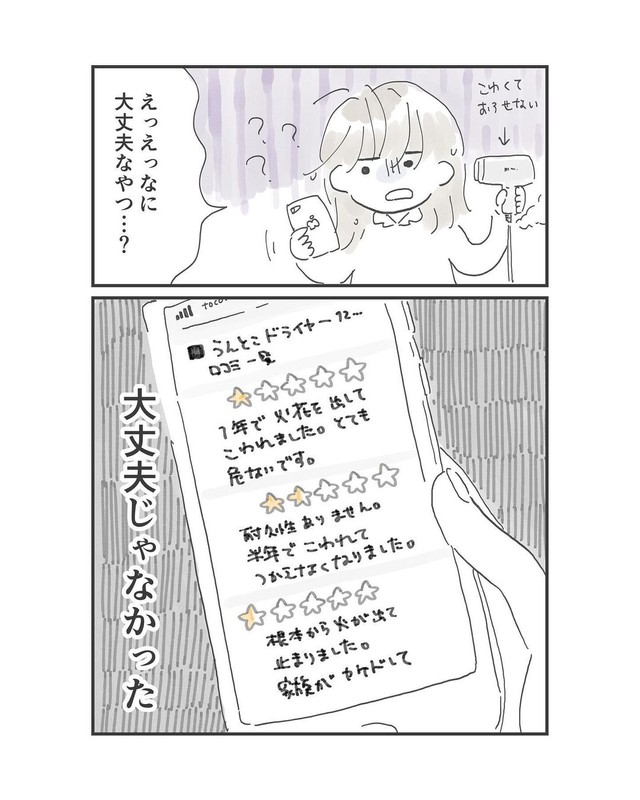 えっえっなに
大丈夫なやつ…?
?
?
?
こわくて
おろせない
うんとこドライヤー12…
口コミ一覧
1年で火花を出して
こわれました。とても
危ないです。
耐久性ありません。
半年でこわれて
つかえなくなりました。
根本から火が出て
止まりました。
家族がヤケドして
大丈夫じゃなかった